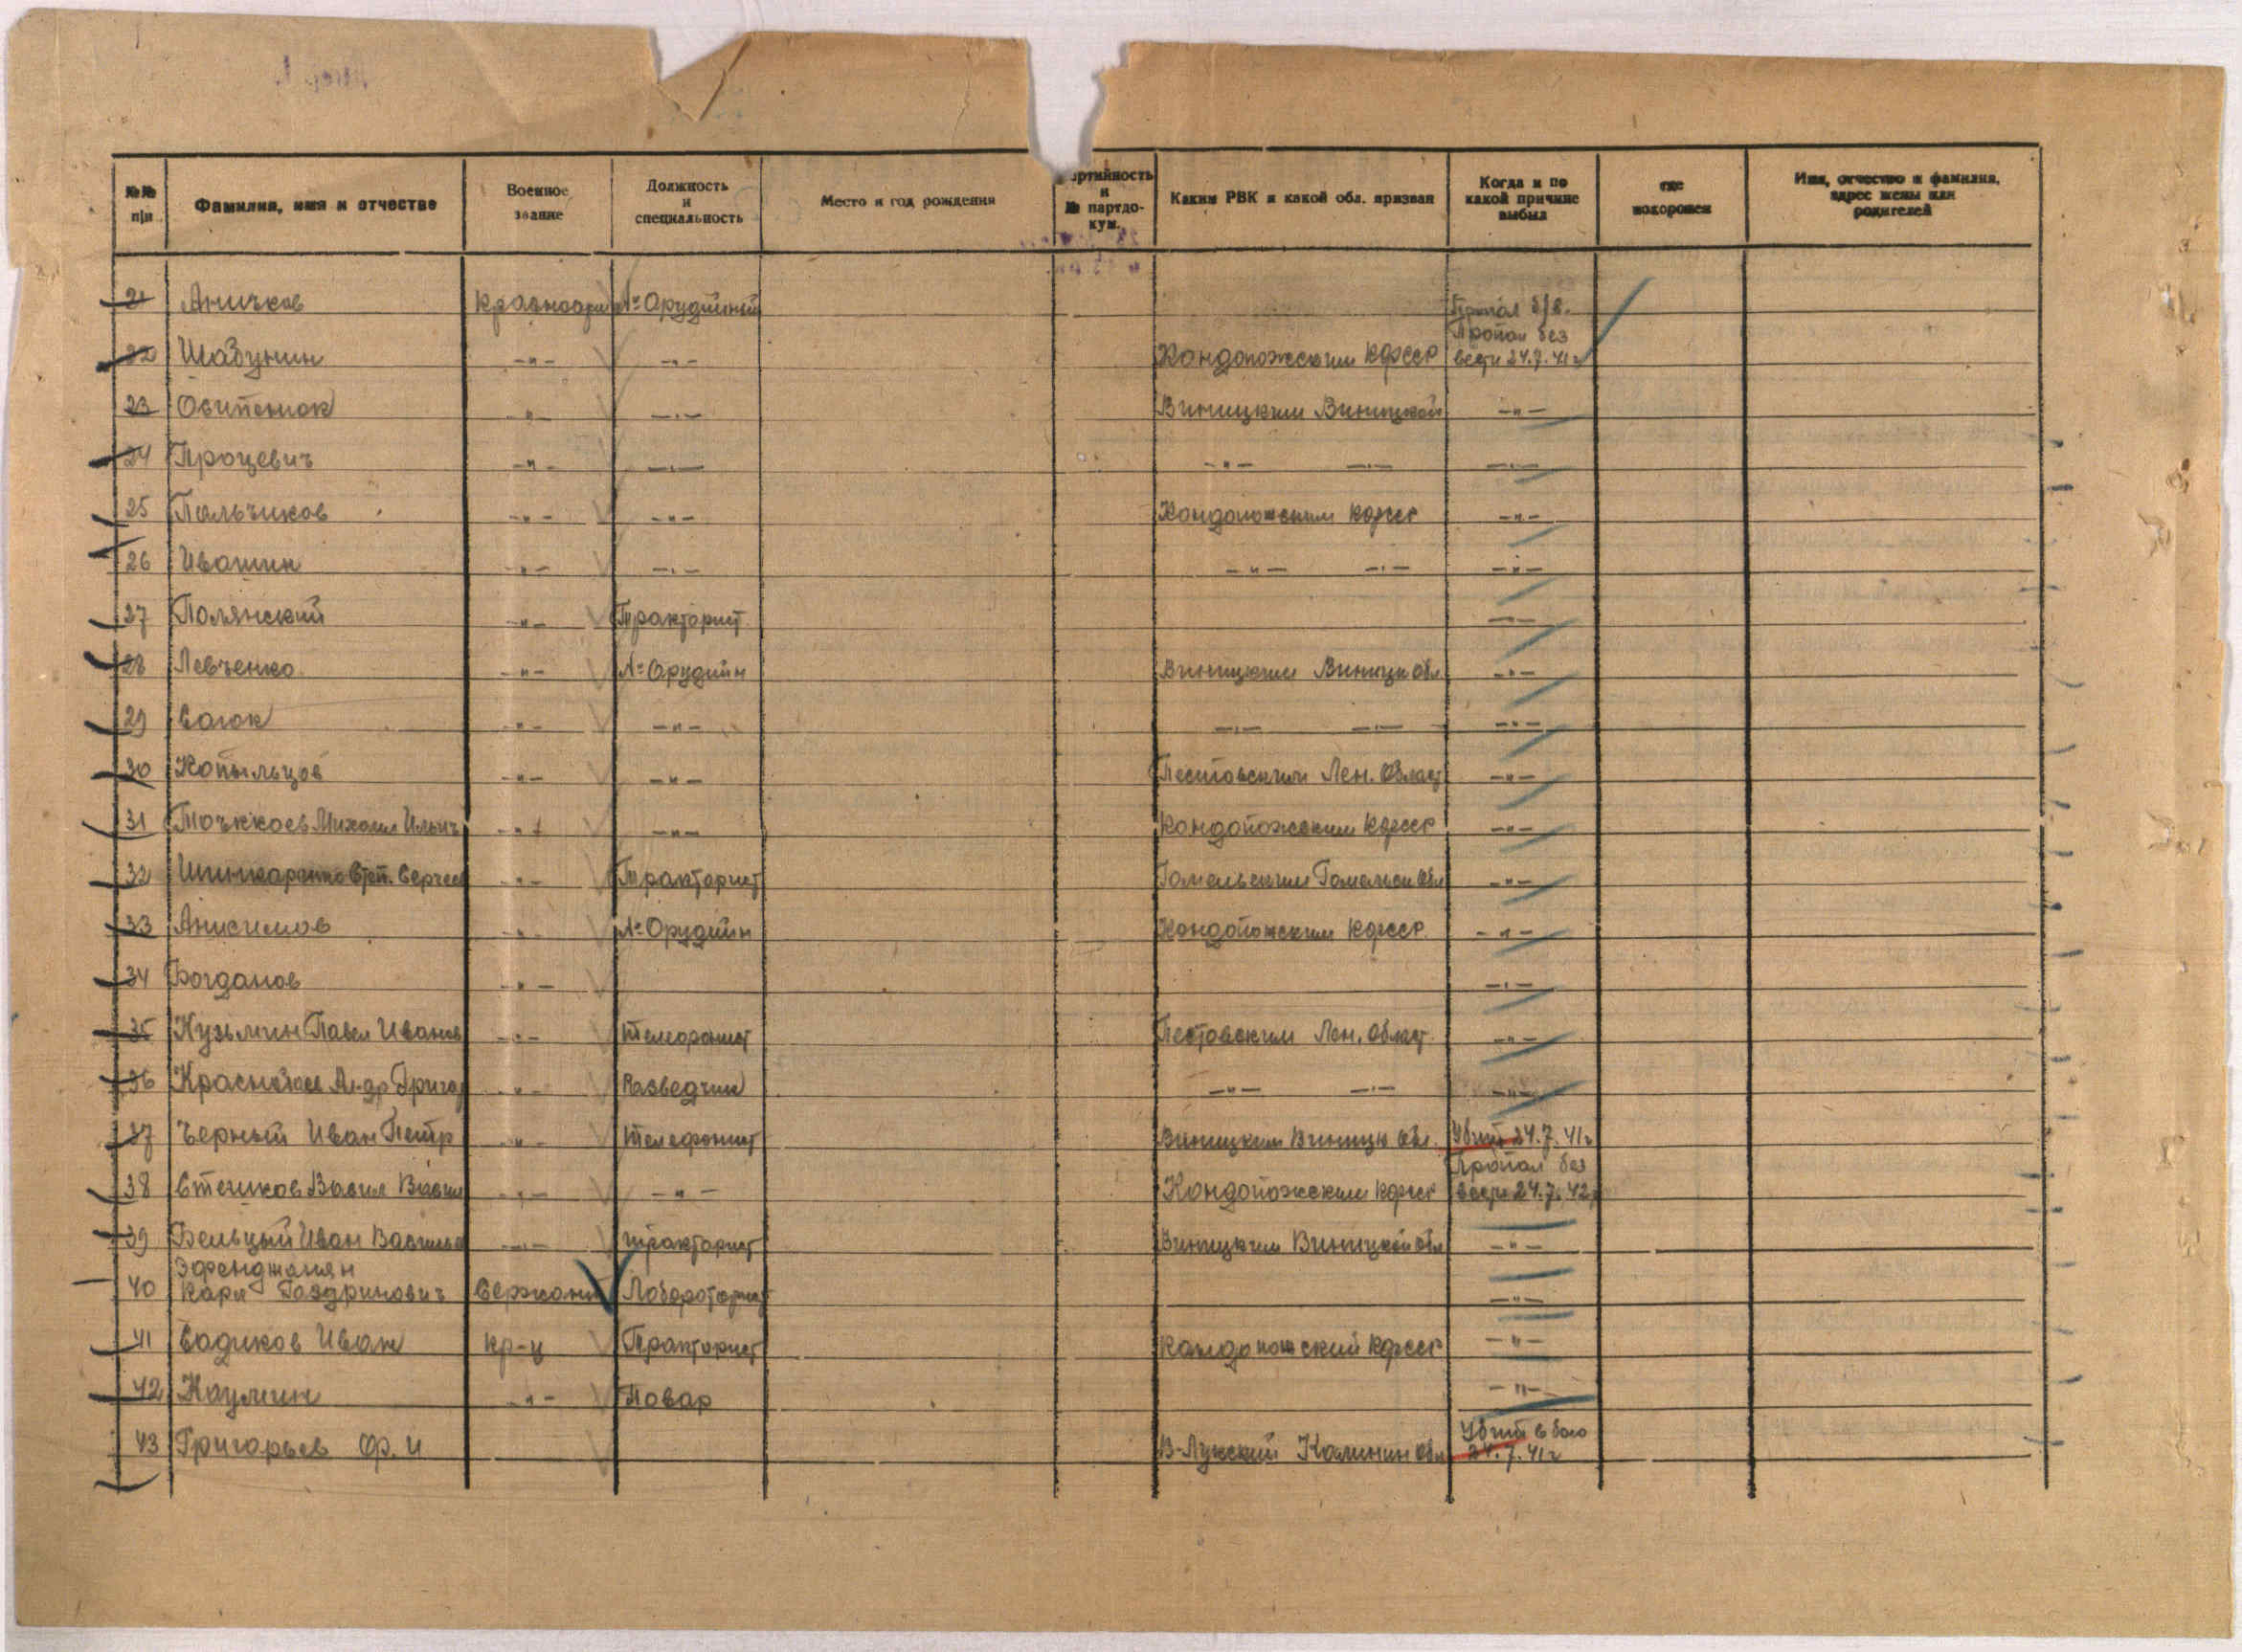 №№ п/п Фамилия, имя и отчество Военное звание Должность и специальность Место и год рождения артийность и № партдокум. Каким РВК и какой обл. призван Когда и по какой причине выбыл где похоронен Имя, отчество и фамилия, адрес жены или родителей
21 Аничков Красноарм №-Орудийный Пропал б/в.
22 Шабунин -"- -"- Кондопожским КФССР Пропал без вести 24.7.41г
23 Осипенюк -"- -"- Виницким Виницкой -"-
24 Процевич -"- -"- -"- -"- -"-
25 Пальчиков -"- -"- Кондопожским КФССР -"-
26 Ивашин -"- -"- -"- -"- -"-
27 Полянский -"- Тракторист -"-
28 Левченко -"- №-Орудийн Виницким Виницк Обл -"-
29 -"- -"- -"- -"- -"-
30 Копыльцов -"- -"- Пестовским Лен. Област -"-
31 Точккоев Михаил Ильич -"- -"- Кондопожским КФССР -"-
32 Шинкаренко Степ. Сергее -"- Тракторист Гомельским Гомельск Обл -"-
33 Анисимов -"- №-Орудийн Кондопожским КФССР -"-
34 Богданов -"- -"-
35 Кузьмин Павел Иванов -"- телефонист Пестовским Лен. Област -"-
36 Ал-др Григор -"- Разведчик -"- -"- -"-
37 Черный Иван Петр -"- телефонист Виницким Виницк Обл. Убит 24.7.41г
38 Стешков Васил Васил -"- -"- Кондопожским КФССР Пропал без вести 24.7.42г
39 Бельцый Иван Василье -"- тракторист Виницким Виницкой обл -"-
Эфенджанян
40 Карл Сержант -"-
41 Садиков Иван кр-ц Тракторист Кандопожский КФССР -"-
42 Наумин -"- Повар -"-
43 Григорьев Ф. И В-Лукский Калинин Обл Убит в бою 24.7.41г